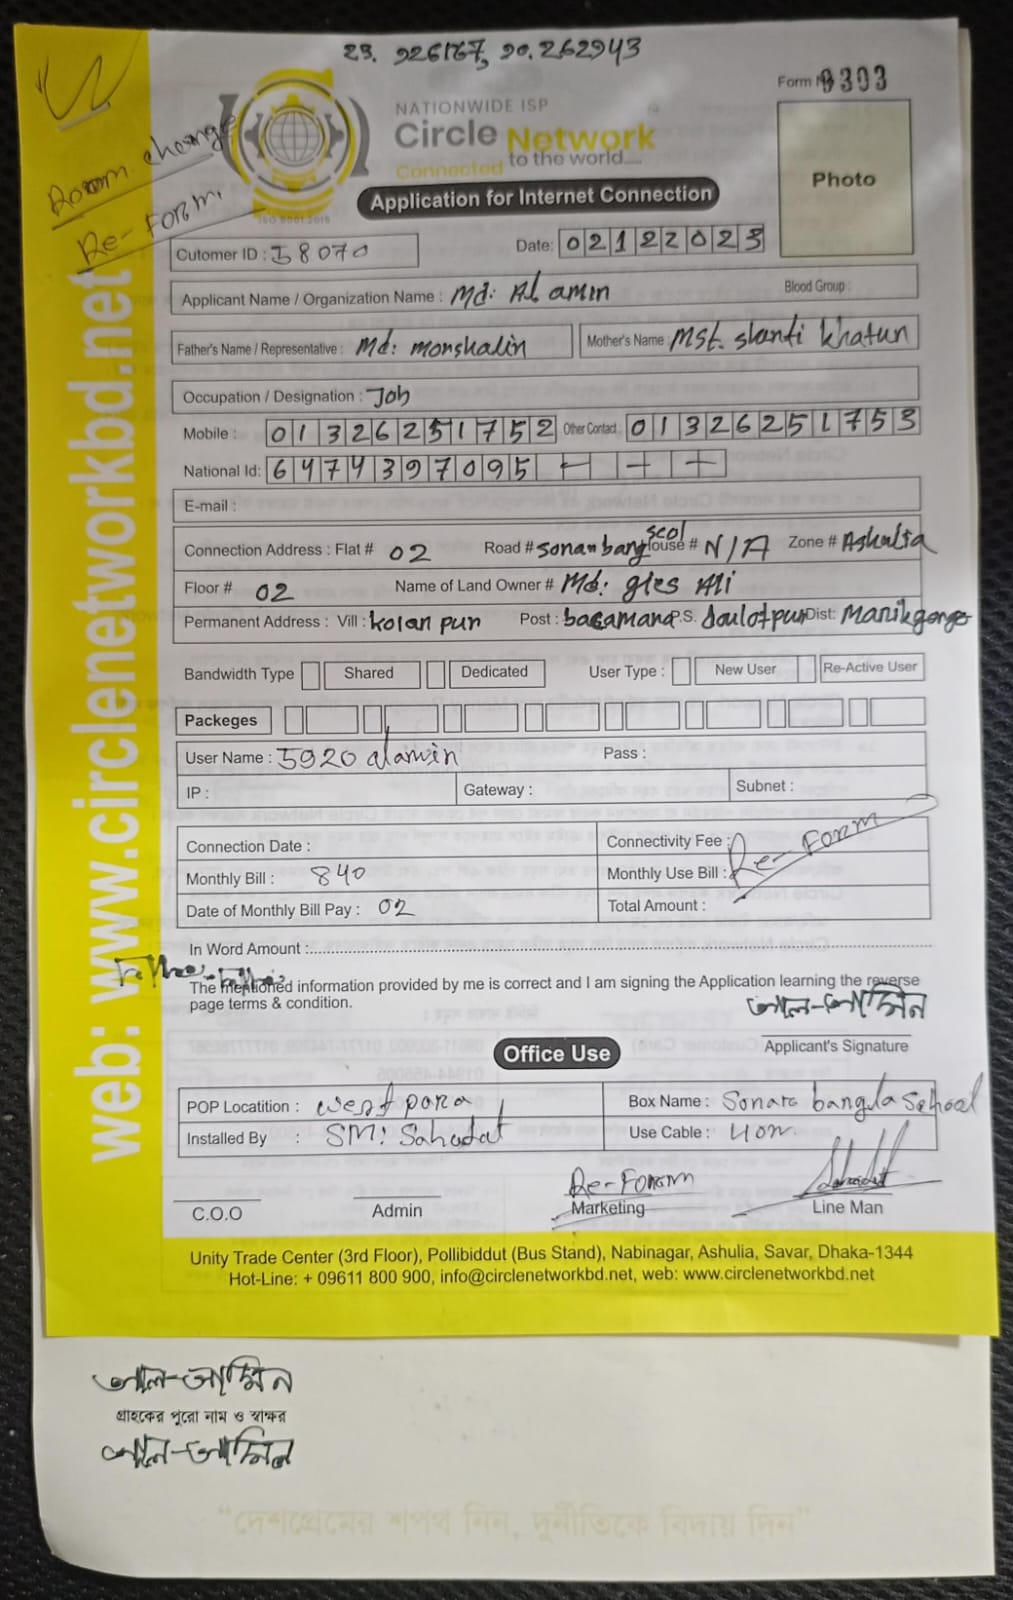 23. 926167, 90.262943
Form No 9303
Room change
Re-Form.
NATIONWIDE ISP
Circle Network
Connected to the world.....
ISO 9001:2015
Application for Internet Connection
Photo
Cutomer ID : 58070 Date: 02122023
Applicant Name / Organization Name : Md: Al amin Blood Group :
Father's Name / Representative : Md: monshalin Mother's Name : MSt. shanti Khatun
Occupation / Designation : Job
Mobile : 01326251752 Other Contact : 01326251753
National Id: 6474397095
E-mail :
Connection Address : Flat # 02 Road # sonan bang scol House # N/A Zone # Ashulia
Floor # 02 Name of Land Owner # Md: gies Ali
Permanent Address : Vill : kolan pur Post : bagamana P.S. doulotpur Dist: Manikgonge
Bandwidth Type Shared Dedicated User Type : New User Re-Active User
Packeges
User Name : 5920 alamin Pass :
IP : Gateway : Subnet :
Connection Date : Connectivity Fee :
Monthly Bill : 840 Monthly Use Bill : Re-Form
Date of Monthly Bill Pay : 02 Total Amount :
In Word Amount :
The mentioned information provided by me is correct and I am signing the Application learning the reverse
page terms & condition.
আল-আমিন
Applicant's Signature
Office Use
POP Locatition : west para Box Name : Sonar bangla School
Installed By : SM: Sahadat Use Cable : 40m.
Re-Form
C.O.O Admin Marketing Line Man
Unity Trade Center (3rd Floor), Pollibiddut (Bus Stand), Nabinagar, Ashulia, Savar, Dhaka-1344
Hot-Line: + 09611 800 900, info@circlenetworkbd.net, web: www.circlenetworkbd.net
web: www.circlenetworkbd.net
আল-আমিন
গ্রাহকের পুরো নাম ও স্বাক্ষর
আল-আমিন
“দেশপ্রেমের শপথ নিন, দুর্নীতিকে বিদায় দিন”